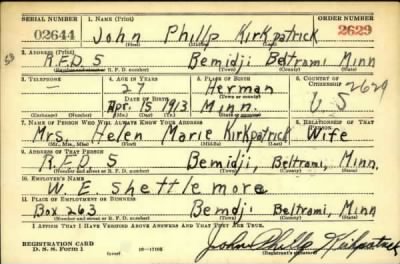 SERIAL NUMBER 1. NAME (Print) ORDER NUMBER
02644 John Phillp Kirkpatrick 2629
(First) (Middle) (Last)
2. ADDRESS (Print)
R.F.D 5 Bemidji Beltrami Minn
(Number and street or R. F. D. number) (Town) (County) (State)
3. TELEPHONE 4. AGE IN YEARS 5. PLACE OF BIRTH 6. COUNTRY OF CITIZENSHIP
— 27 Herman 2629
DATE OF BIRTH (Town or county)
Apr. 15 1913 Minn. U S
(Mo.) (Day) (Yr.) (State or country)
7. NAME OF PERSON WHO WILL ALWAYS KNOW YOUR ADDRESS 8. RELATIONSHIP OF THAT PERSON
Mrs. Helen Marie Kirkpatrick Wife
(Mr., Mrs., Miss) (First) (Middle) (Last)
9. ADDRESS OF THAT PERSON
R.F.D 5 Bemidji, Beltrami, Minn.
(Number and street or R. F. D. number) (Town) (County) (State)
10. EMPLOYER'S NAME
W. E. Shettlemore
11. PLACE OF EMPLOYMENT OR BUSINESS
Box 263 Bemdji Beltrami, Minn
(Number and street or R. F. D. number) (Town) (County) (State)
I AFFIRM THAT I HAVE VERIFIED ABOVE ANSWERS AND THAT THEY ARE TRUE.
REGISTRATION CARD
D. S. S. Form 1 (over) 16—17105 John Phillp Kirkpatrick
(Registrant's signature)